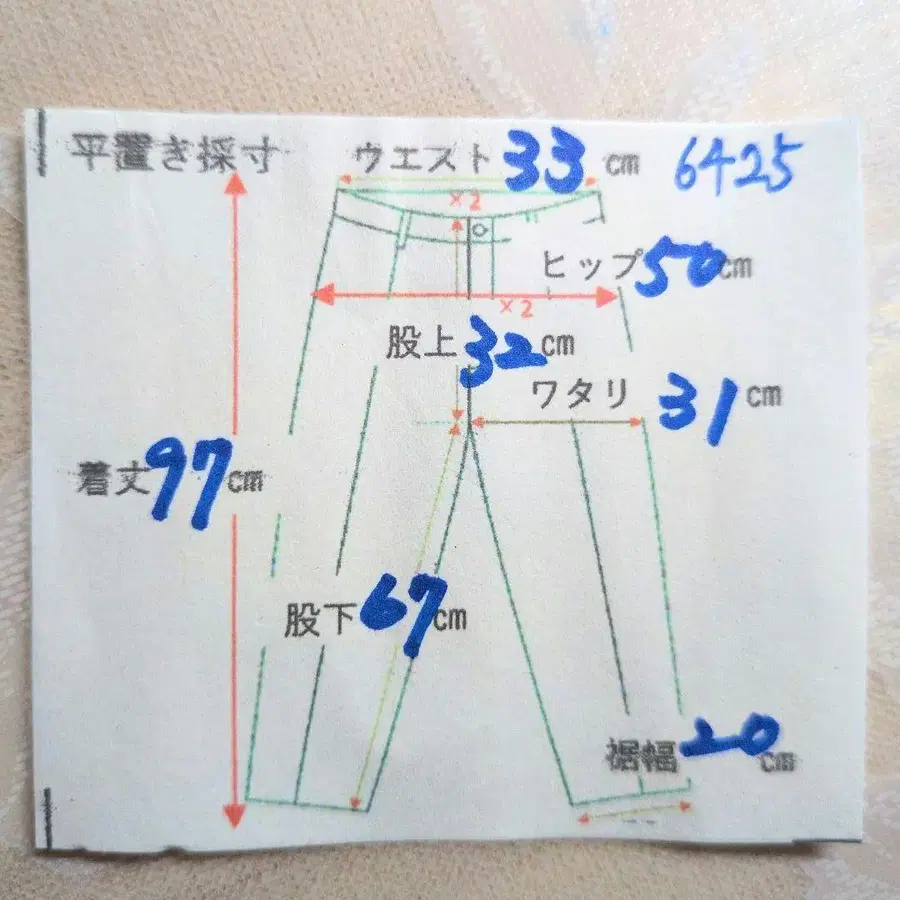 平置き採寸 ウエスト 33 cm 6425
×2
ヒップ 50 cm
×2
股上 32 cm
ワタリ 31 cm
着丈 97 cm
股下 67 cm
裾幅 20 cm